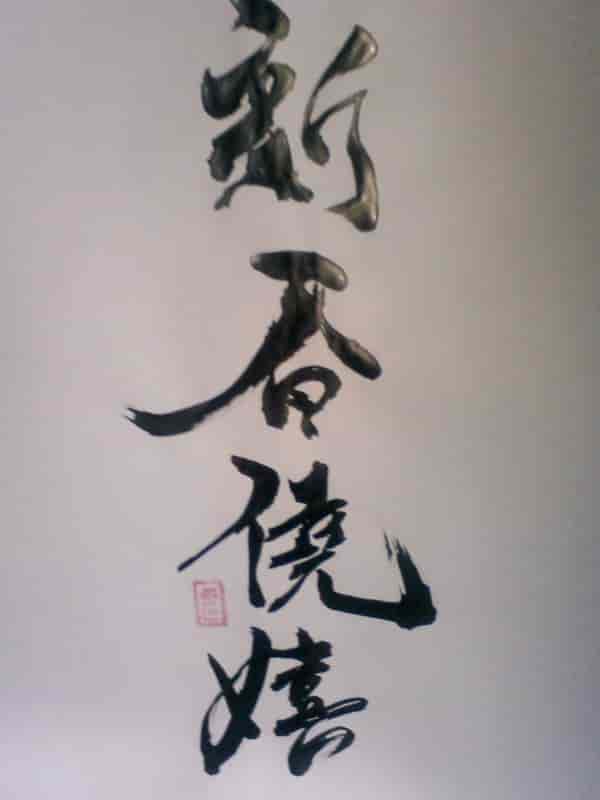 新春僥嬉